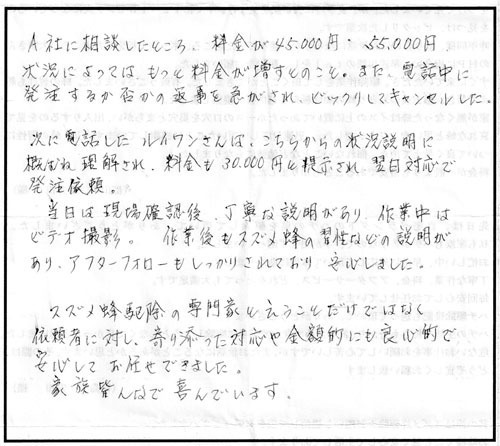 A社に相談したところ、料金が45.000円~55.000円
状況によっては、もっと料金が増すとのこと。また、電話中に
発注するか否かの返事を急がされ、ビックリしてキャンセルした。
次に電話した ルイワンさんは、こちらからの状況説明に
概ね理解され、料金も30.000円と提示され、翌日対応で
発注依頼。
当日は現場確認後、丁寧な説明があり、作業中は
ビデオ撮影。 作業後もスズメ蜂の習性などの説明が
あり、アフターフォローもしっかりされており 安心しました。
スズメ蜂駆除の専門家と云うことだけではなく
依頼者に対し、寄り添った対応や金額的にも良心的で
安心して お任せできました。
家族皆んなで 喜んでいます。